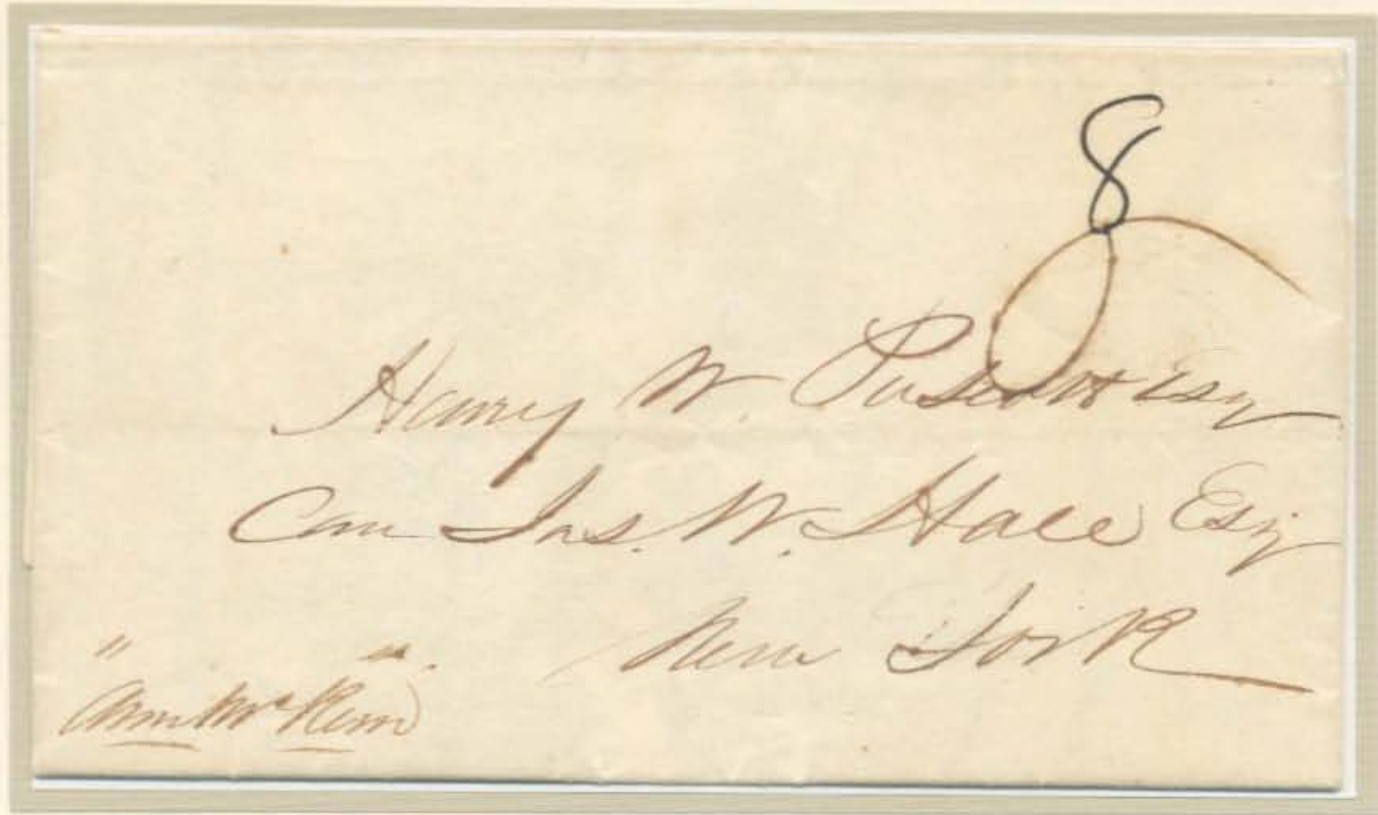 8
Henry W. Esq
Care Jas. W. Hale Esq
New York
"Ann McKim"